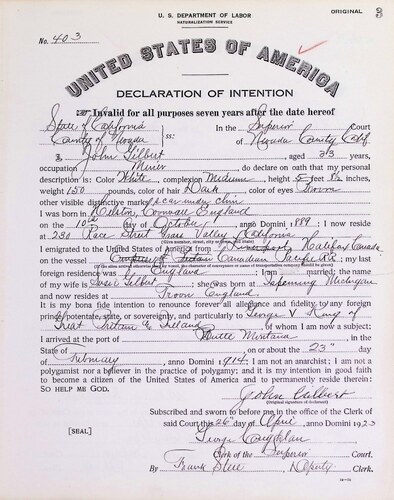 U. S. DEPARTMENT OF LABOR
NATURALIZATION SERVICE
ORIGINAL
3
No. 403
UNITED STATES OF AMERICA
DECLARATION OF INTENTION
Invalid for all purposes seven years after the date hereof
State of California
County of Nevada
ss:
In the Superior Court
of Nevada County Calif
I, John Gilbert, aged 33 years,
occupation Miner, do declare on oath that my personal
description is: Color White, complexion Medium, height 5 feet 8½ inches,
weight 150 pounds, color of hair Dark, color of eyes Brown
other visible distinctive marks scar under chin
I was born in Cornwall England
on the 10th day of October, anno Domini 1889; I now reside
at 231 Race Street Grass Valley, California
(Give number, street, city or town, and State.)
I emigrated to the United States of America from Halifax Canada
on the vessel Canadian Pacific RR; my last
foreign residence was England; I am married; the name
of my wife is Susie Gilbert; she was born at Ishpeming Michigan
and now resides at Troon England
It is my bona fide intention to renounce forever all allegiance and fidelity to any foreign
prince, potentate, state, or sovereignty, and particularly to George V King of
Great Britain & Ireland, of whom I am now a subject;
I arrived at the port of Butte Montana, in the
State of, on or about the 23" day
of February, anno Domini 1914; I am not an anarchist; I am not a
polygamist nor a believer in the practice of polygamy; and it is my intention in good faith
to become a citizen of the United States of America and to permanently reside therein:
SO HELP ME GOD.
John Gilbert
(Original signature of declarant.)
Subscribed and sworn to before me in the office of the Clerk of
said Court this 26" day of April, anno Domini 1923
[SEAL]
George Coughlan
Clerk of the Superior Court.
By Frank Steel, Deputy Clerk.